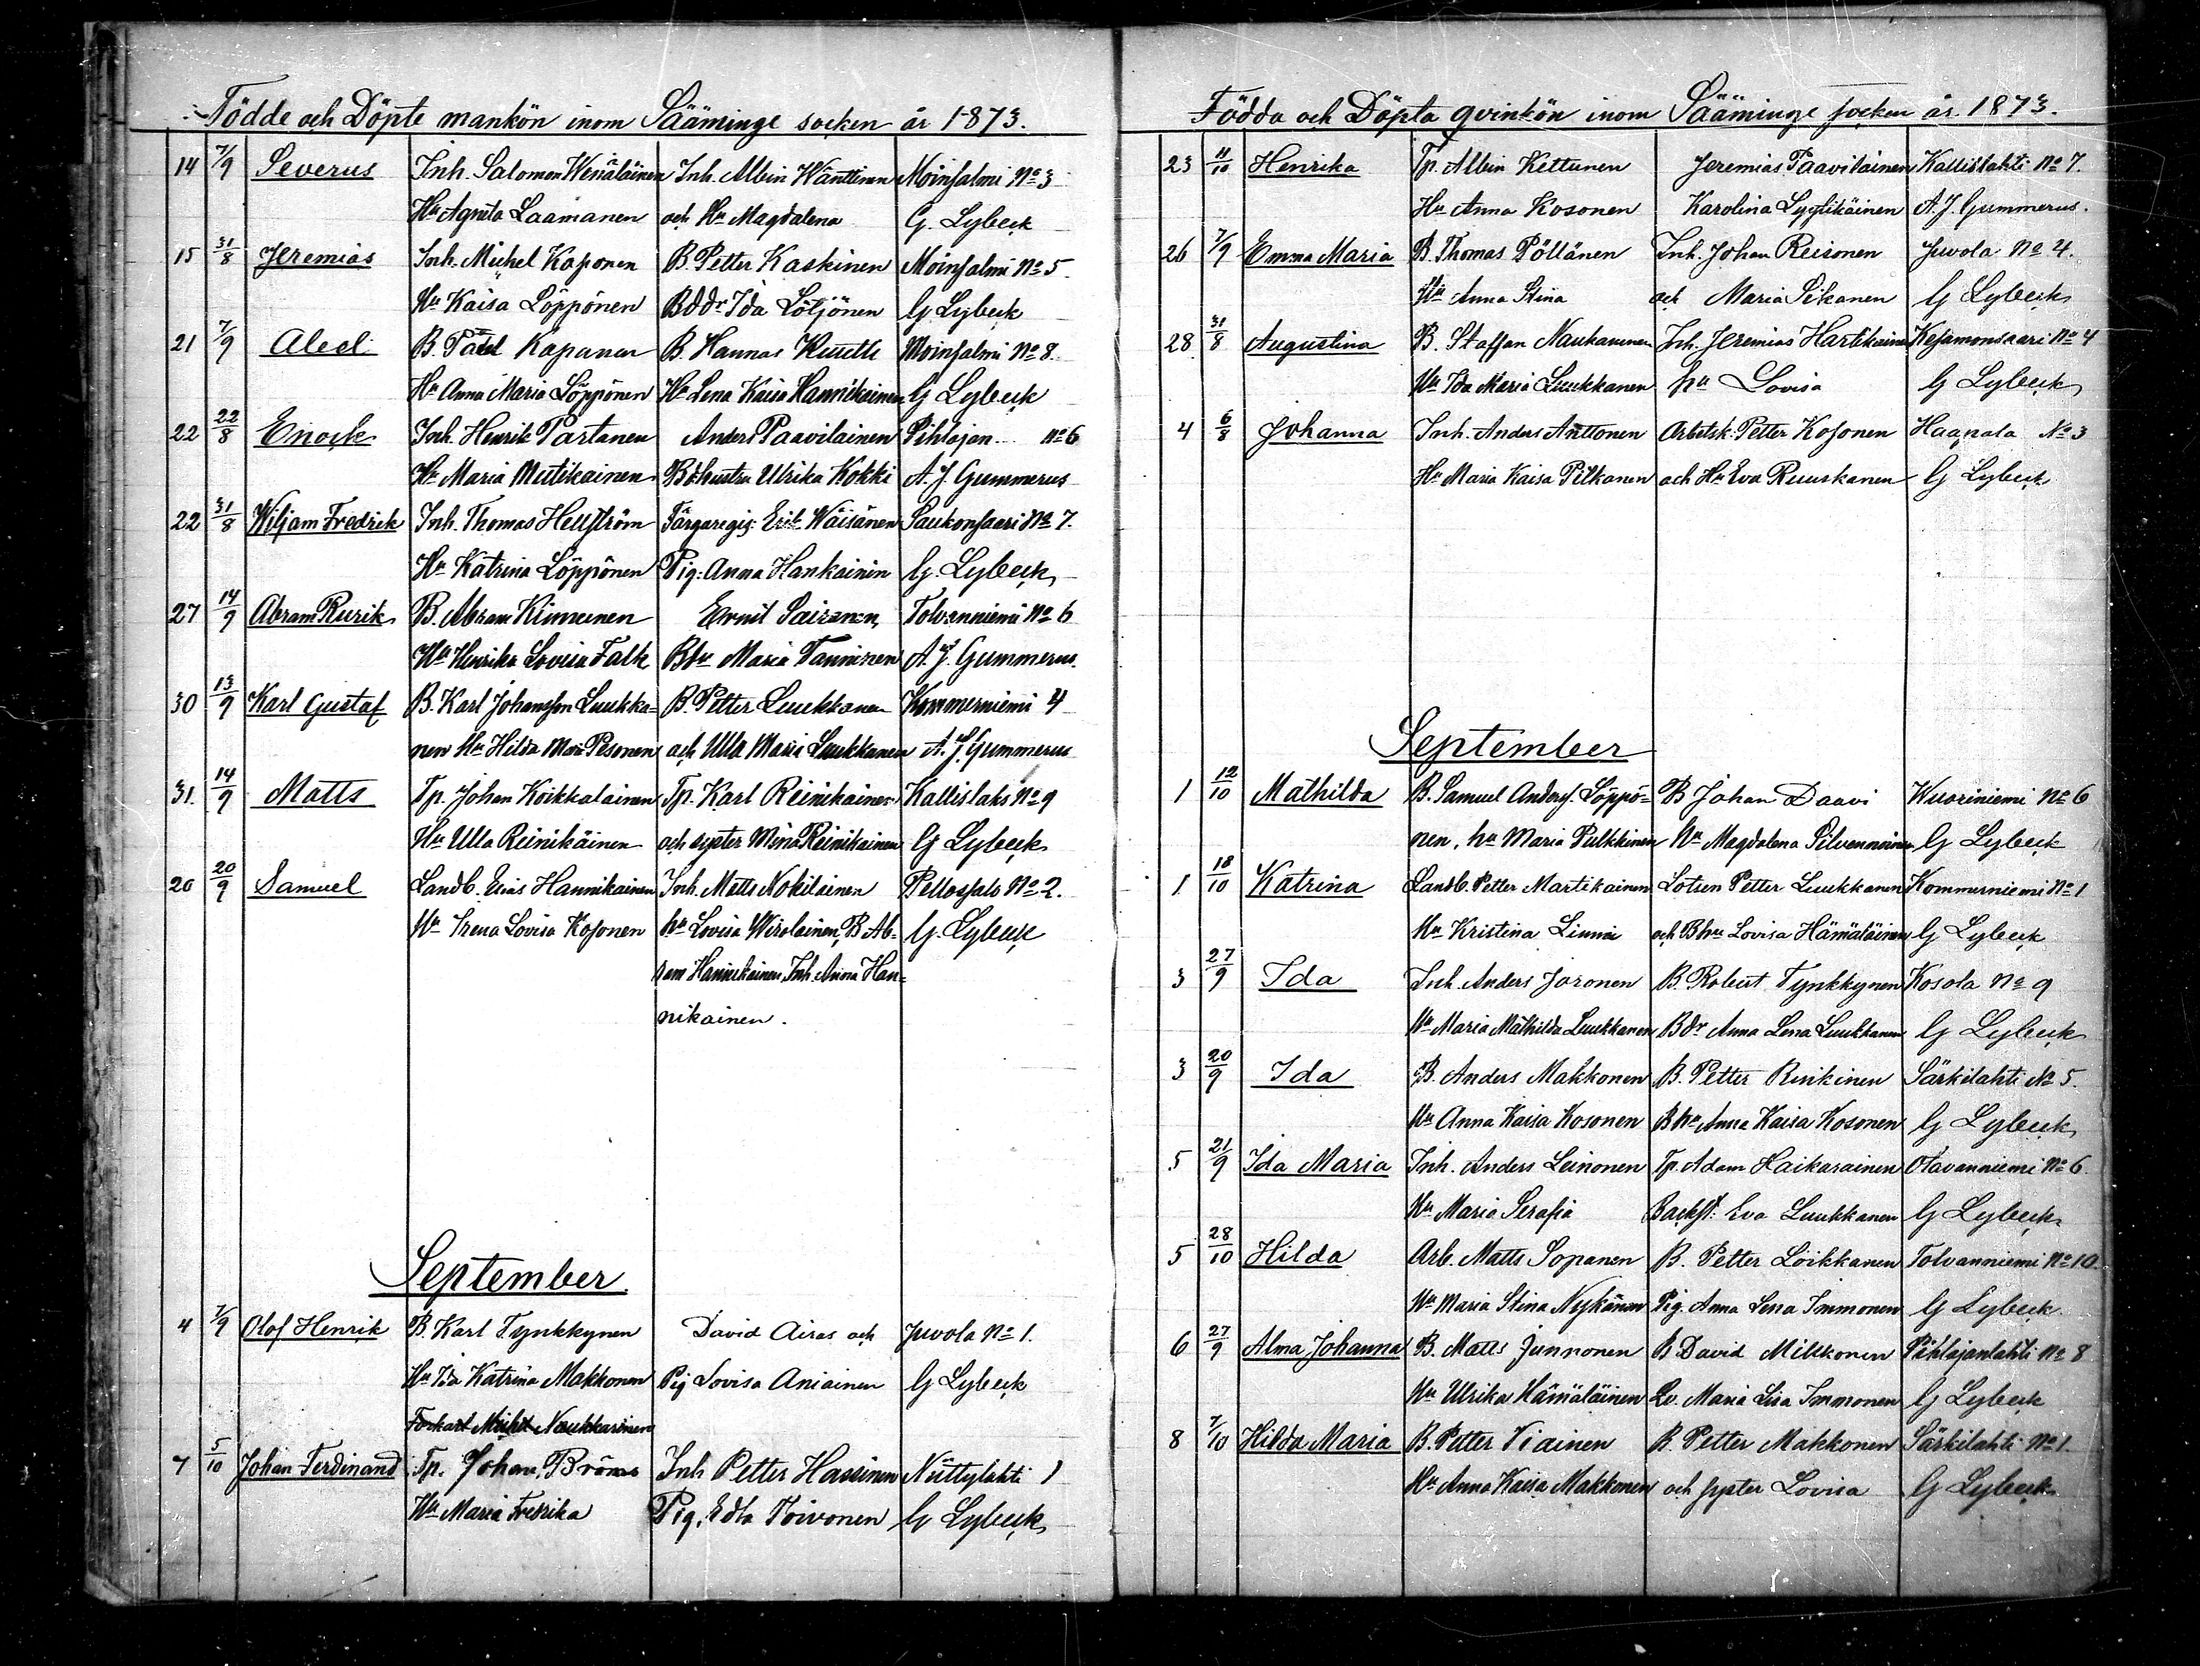 Födde och Döpte mankön inom Sääminge socken år 1873.
14 7/9 Severus Inh. Salomon Wenäläinen Inh. Albin Wänttinen Moinsalmi No 3
Hu Agneta Laamanen och Hu Magdalena G. Lybeck
15 31/8 Jeremias Inh. Michel Kaponen B. Petter Kaskinen Moinsalmi No 5.
Hu Kaisa Löppönen Bddr Ida Löljönen G. Lybeck
21 7/9 Abel B. Paul Kapanen B. Hannas Moinsalmi No 8.
Hu Anna Maria Löppönen Hu Lena Kaisa Hannikainen G Lybeck
22 22/8 Enock Inh. Henrik Partanen Anders Paavilainen Pihlajan No 6
Hu Maria Mutikainen Bdhustru Ulrika Kokki A. J. Gummerus
22 31/8 Wiljam Fredrik Inh. Thomas Hellström Färgaregig: Erik Wäisänen Saukonsaari No 7.
Hu Katrina Löppönen Pig: Anna Hankainin G. Lybeck
27 14/9 Abram Rurik B. Abram Kimunen Ernil Sairanen Tolvanniemi No 6
Hu Henrika Lovisa Falk Bhu Maria Tanninen A. J. Gummerus.
30 13/9 Karl Gustaf B. Karl Johansson Luukka= B. Petter Luukkanen Kommerniemi 4
nen Hu Hilda Mari Pesonen och Ulla Maria Luukkanen A. J. Gummerus
31. 14/9 Matts Tp. Johan Koikkalainen Tp. Karl Reinikainen Kallislaks No 9
Hu Ulla Reinikäinen och syster Mina Reinikainen G Lybeck
20 20/9 Samuel Landb. Elias Hannikainen Inh. Matts Nokilainen Pellossalo No 2.
Hu Irena Lovisa Kosonen hu Lovisa Wirolainen, B Ab= G. Lybeck
ram Hannikainen, Inh. Anna Han=
nikainen.
September.
4 7/9 Olof Henrik B. Karl Tynkkynen David Airas och Juvola No 1.
Hu Ida Katrina Makkonen Pig Lovisa Aniainen G Lybeck
Michel Naukkarinen
7 5/10 Johan Ferdinand Tp. Johan Bröms Inh Petter Hassinen Niittylahti 1
Hu Maria Fredrika Pig. Edla Toivonen G Lybeck
Födda och Döpta qvinkön inom Sääminge socken år 1873.
23 11/10 Henrika Tp. Albin Kettunen Jeremias Paavilainen Kallislahti No 7.
Hu Anna Kosonen Karolina Lyytikäinen A. J. Gummerus.
26 7/9 Emma Maria B. Thomas Pöllänen Inh. Johan Reisonen Juvola No 4.
Hu Anna Stina och Maria Pikanen G Lybeck
28 31/8 Augustina B. Staffan Naukarinen Inh. Jeremias Hartikainen Kesamonsaari No 4
Hu Ida Maria Luukkanen hu Lovisa G Lybeck
4 6/8 Johanna Inh. Anders Anttonen Arbetsk: Petter Kosonen Haapala No 3
Hu Maria Kaisa Pitkanen och Hu Eva Ruuskanen G Lybeck
September
1 12/10 Mathilda B. Samuel Anderss. Löppö= B Johan Daavi Kuoriniemi No 6
nen, hu Maria Pulkkinen hu Magdalena Silvennoinen G Lybeck
1 18/10 Katrina Landb. Petter Martikainen Lotsen Petter Luukkanen Kommerniemi No 1
Hu Kristina Linna och Bhu Lovisa Hämäläinen G Lybeck
3 27/9 Ida Inh. Anders Joronen B. Robert Tynkkynen Kosola No 9
Hu Maria Mathilda Luukkanen Bdr Anna Lena Luukkanen G Lybeck
3 20/9 Ida B. Anders Makkonen B. Petter Rinkinen Särkilahti No 5.
Hu Anna Kaisa Kosonen Bhu Anna Kaisa Kosonen G Lybeck
5 21/9 Ida Maria Inh. Anders Leinonen Tp. Adam Haikarainen Otavanniemi No 6.
Hu Maria Serafia Backst: Eva Luukkanen G Lybeck
5 28/10 Hilda Arb. Matts Sopanen B. Petter Loikkanen Tolvanniemi No 10.
Hu Maria Stina Nykänen Pig. Anna Lena Immonen G Lybeck.
6 27/9 Alma Johanna B. Matts Junnonen B David Mikkonen Pihlajanlahti No 8
Hu Ulrika Hämäläinen Lv. Maria Lisa Immonen G Lybeck
8 7/10 Hilda Maria B. Petter Viainen B. Petter Makkonen Särkilahti No 1
Hu Anna Kaisa Makkonen och syster Lovisa G Lybeck